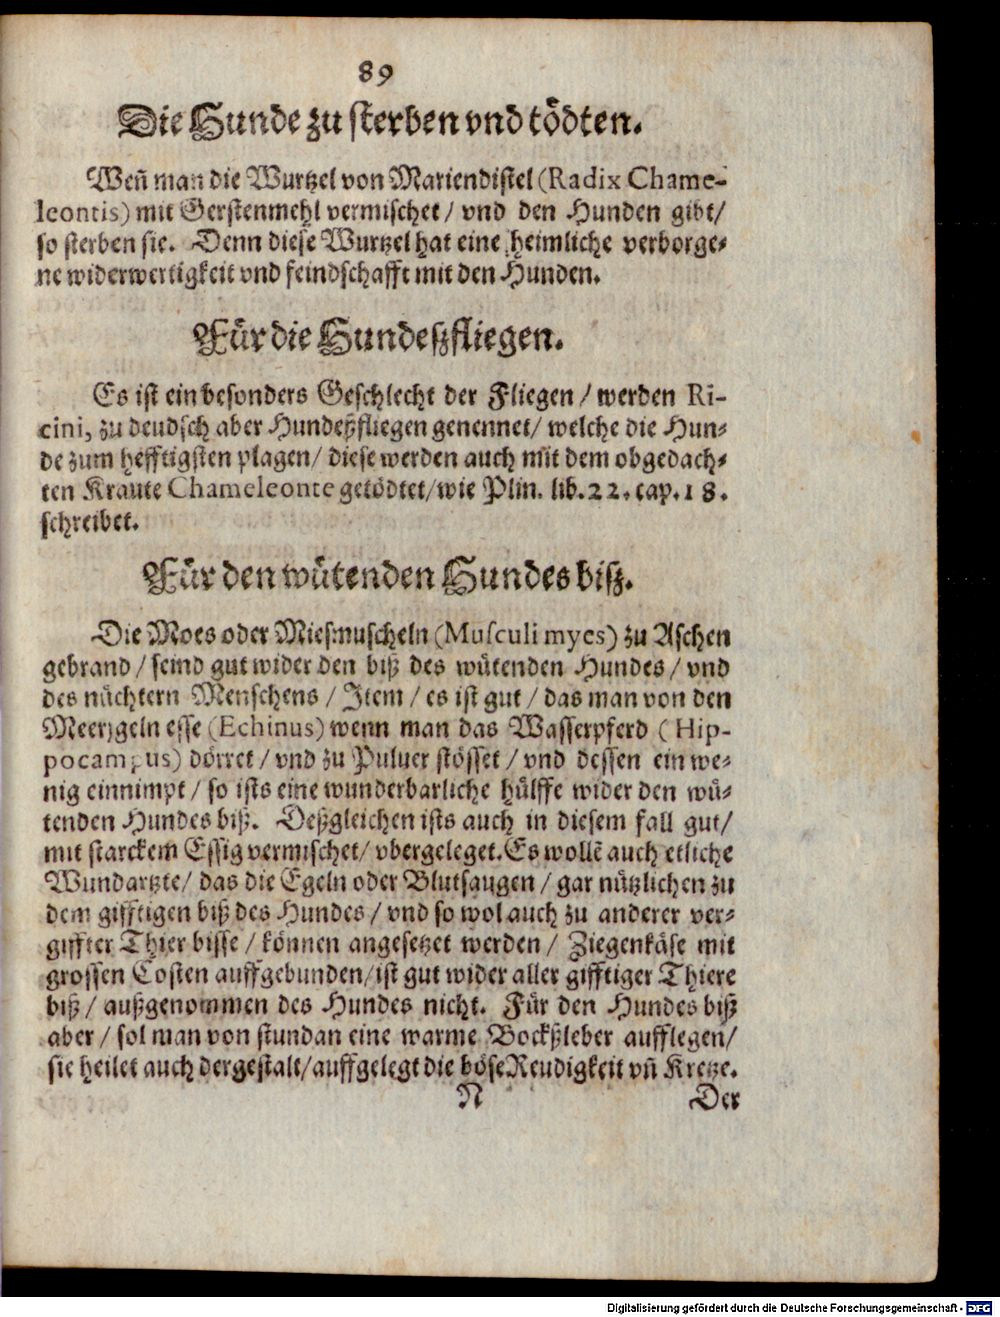 89
Die Hunde zu sterben vnd tödten.
Weñ man die Wurtzel von Mariendistel (Radix Chame-
leontis) mit Gerstenmehl vermischet / vnd den Hunden gibt /
so sterben sie. Denn diese Wurtzel hat eine heimliche verborge-
ne widerwertigkeit vnd feindschafft mit den Hunden.
Für die Hundeßfliegen.
Es ist ein besonders Geschlecht der Fliegen / werden Ri-
cini, zu deudsch aber Hundeßfliegen genennet / welche die Hun-
de zum hefftigsten plagen / diese werden auch mit dem obgedach-
ten Kraute Chameleonte getödtet / wie Plin. lib. 22. cap. 18.
schreibet.
Für den wütenden Hundes biß.
Die Moes oder Miesmuscheln (Musculi myes) zu Aschen
gebrand / seind gut wider den biß des wütenden Hundes / vnd
des nüchtern Menschens / Item / es ist gut / das man von den
Meerjgeln esse (Echinus) wenn man das Wasserpferd (Hip-
pocampus) dörret / vnd zu Puluer stösset / vnd dessen ein we-
nig einnimpt / so ists eine wunderbarliche hülffe wider den wü-
tenden Hundes biß. Deßgleichen ists auch in diesem fall gut /
mit starckem Essig vermischet / vbergeleget. Es wollẽ auch etliche
Wundartzte / das die Egeln oder Blutsaugen / gar nützlichen zu
dem gifftigen biß des Hundes / vnd so wol auch zu anderer ver-
giffter Thier bisse / können angesetzet werden / Ziegenkäse mit
grossen Costen auffgebunden / ist gut wider aller gifftiger Thiere
biß / außgenommen des Hundes nicht. Für den Hundes biß
aber / sol man von stundan eine warme Bockßleber aufflegen /
sie heilet auch dergestalt / auffgelegt die böse Reudigkeit vñ Kretze.
N Der
Digitalisierung gefördert durch die Deutsche Forschungsgemeinschaft - DFG